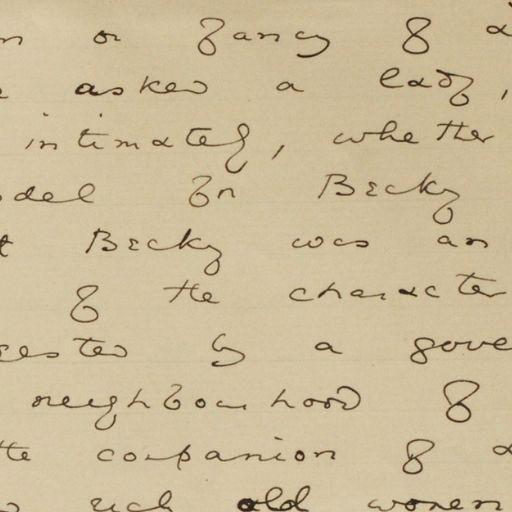 n or fancy of a
asked a lady,
intimately, whether
odel for Becky
t Becky was an
of the character
gested by a gove
neighbourhood of
the companion of a
rich old women